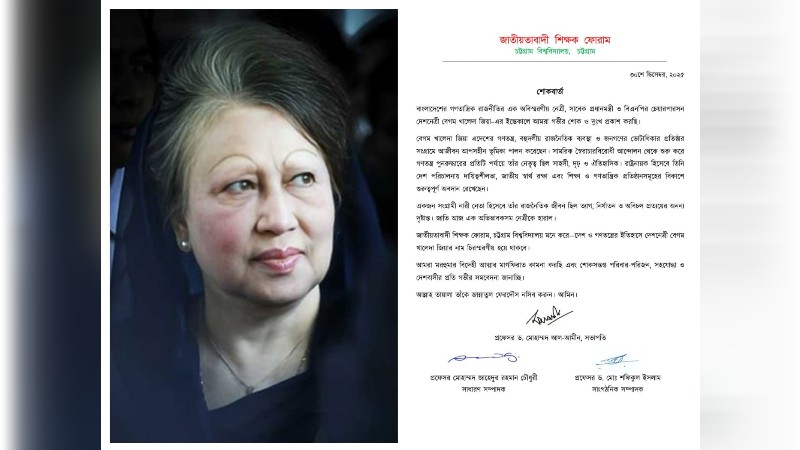 জাতীয়তাবাদী শিক্ষক ফোরাম
চট্টগ্রাম বিশ্ববিদ্যালয়, চট্টগ্রাম
৩০শে ডিসেম্বর, ২০২৫
শোকবার্তা
বাংলাদেশের গণতান্ত্রিক রাজনীতির এক অবিস্মরণীয় নেত্রী, সাবেক প্রধানমন্ত্রী ও বিএনপির চেয়ারপারসন
দেশনেত্রী বেগম খালেদা জিয়া–এর ইন্তেকালে আমরা গভীর শোক ও দুঃখ প্রকাশ করছি।
বেগম খালেদা জিয়া এদেশের গণতন্ত্র, বহুদলীয় রাজনৈতিক ব্যবস্থা ও জনগণের ভোটাধিকার প্রতিষ্ঠার
সংগ্রামে আজীবন আপসহীন ভূমিকা পালন করেছেন। সামরিক স্বৈরাচারবিরোধী আন্দোলন থেকে শুরু করে
গণতন্ত্র পুনরুদ্ধারের প্রতিটি পর্যায়ে তাঁর নেতৃত্ব ছিল সাহসী, দৃঢ় ও ঐতিহাসিক। রাষ্ট্রনায়ক হিসেবে তিনি
দেশ পরিচালনায় দায়িত্বশীলতা, জাতীয় স্বার্থ রক্ষা এবং শিক্ষা ও গণতান্ত্রিক প্রতিষ্ঠানসমূহের বিকাশে
গুরুত্বপূর্ণ অবদান রেখেছেন।
একজন সংগ্রামী নারী নেতা হিসেবে তাঁর রাজনৈতিক জীবন ছিল ত্যাগ, নির্যাতন ও অবিচল প্রত্যয়ের অনন্য
দৃষ্টান্ত। জাতি আজ এক অভিভাবকসম নেত্রীকে হারাল।
জাতীয়তাবাদী শিক্ষক ফোরাম, চট্টগ্রাম বিশ্ববিদ্যালয় মনে করে—দেশ ও গণতন্ত্রের ইতিহাসে দেশনেত্রী বেগম
খালেদা জিয়ার নাম চিরস্মরণীয় হয়ে থাকবে।
আমরা মরহুমার বিদেহী আত্মার মাগফিরাত কামনা করছি এবং শোকসন্তপ্ত পরিবার-পরিজন, সহযোদ্ধা ও
দেশবাসীর প্রতি গভীর সমবেদনা জানাচ্ছি।
আল্লাহ তায়ালা তাঁকে জান্নাতুল ফেরদৌস নসিব করুন। আমিন।
প্রফেসর ড. মোহাম্মদ আল-আমীন, সভাপতি
প্রফেসর মোহাম্মদ জাহেদুর রহমান চৌধুরী
সাধারণ সম্পাদক
প্রফেসর ড. মোঃ শফিকুল ইসলাম
সাংগঠনিক সম্পাদক